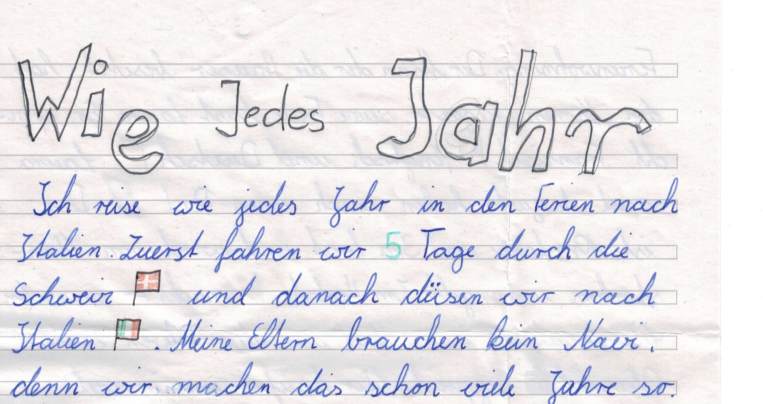 Wie Jedes Jahr
Ich reise wie jedes Jahr in den Ferien nach
Italien. Zuerst fahren wir 5 Tage durch die
Schweiz und danach düsen wir nach
Italien. Meine Eltern brauchen kein Navi,
denn wir machen das schon viele Jahre so.